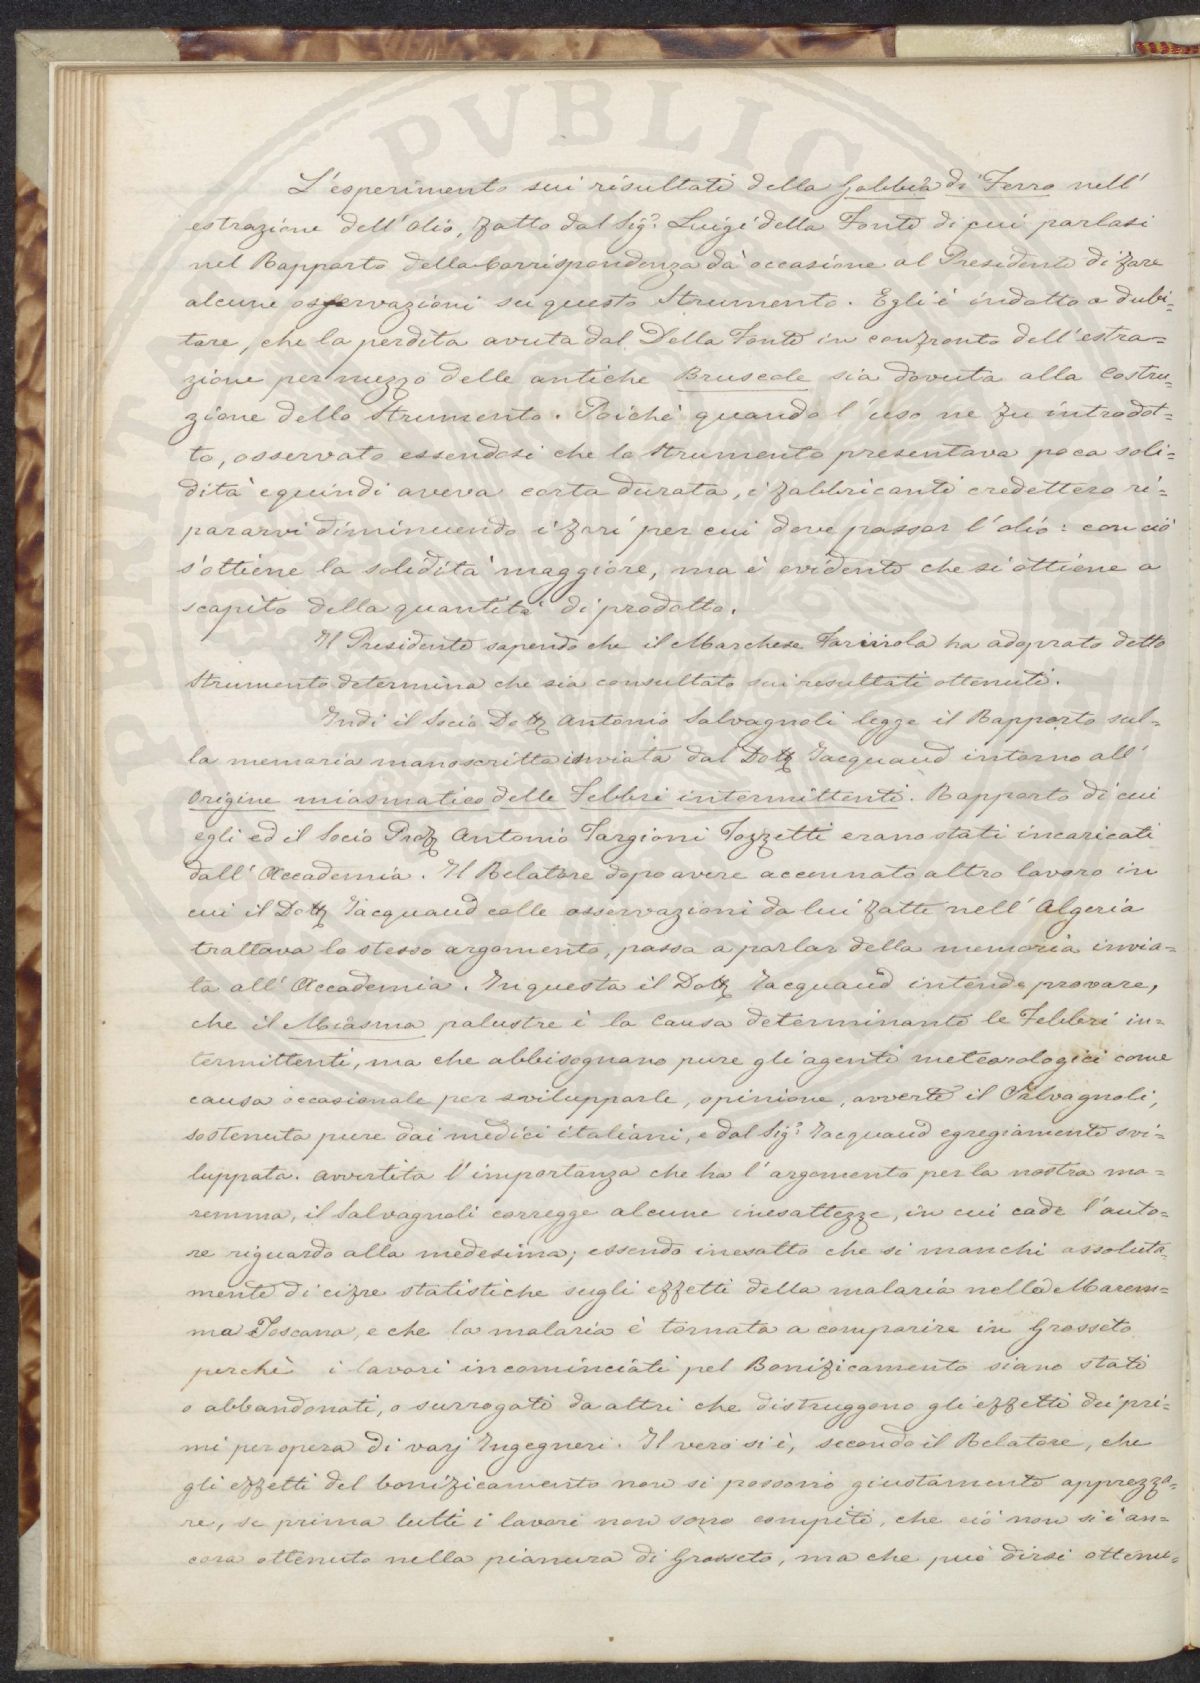 L'esperimento sui risultati della Gabbia di Ferro nell'
estrazione dell'olio, fatto dal Sig.r Luigi della Fonte di cui parlasi
nel Rapporto della Corrispondenza dà occasione al Presidente di fare
alcune osservazioni su questo Strumento. Egli è indotto a dubi=
tare, che la perdita avuta dal Della Fonte in confronto dell'estra=
zione per mezzo delle antiche Bruscole sia dovuta alla Costru=
zione dello Strumento. Poichè quando l'uso ne fu introdot=
to, osservato essendosi che lo Strumento presentava poca soli=
dità e quindi aveva corta durata, i fabbricanti credettero ri=
pararvi diminuendo i fori per cui deve passar l'olio: con ciò
s'ottiene la solidità maggiore, ma è evidente che si ottiene a
scapito della quantità di prodotto.
Il Presidente sapendo che il Marchese Farinola ha adoprato detto
Strumento determina che sia consultato sui resultati ottenuti.
Indi il Socio Dott. Antonio Salvagnoli legge il Rapporto sul=
la memoria manoscritta inviata dal Dott. Jacquaud intorno all'
Origine miasmatico delle Febbri intermittenti. Rapporto di cui
egli ed il Socio Prof. Antonio Targioni Tozzetti erano stati incaricati
dall'Accademia. Il Relatore dopo avere accennato altro lavoro in
cui il Dott. Jacquaud colle osservazioni da lui fatte nell'Algeria
trattava lo stesso argomento, passa a parlar della memoria invia=
ta all'Accademia. In questa il Dott. Jacquaud intende provare,
che il Miasma palustre è la Causa determinante le Febbri in=
termittenti, ma che abbisognano pure gli agenti meteorologici come
causa occasionale per svilupparle, opinione, avverte il Salvagnoli,
sostenuta pure dai medici italiani, e dal Sig.r Jacquaud egregiamente svi=
luppata. Avvertita l'importanza che ha l'argomento per la nostra ma=
remma, il Salvagnoli corregge alcune inesattezze, in cui cade l'auto=
re riguardo alla medesima; essendo inesatto che si manchi assoluta=
mente di cifre statistiche sugli effetti della malaria nella Marem=
ma Toscana, e che la malaria è tornata a comparire in Grosseto
perchè i lavori incominciati pel Bonificamento siano stati
o abbandonati, o surrogati da altri che distruggono gli effetti dei pri=
mi per opera di varj Ingegneri. Il vero si è, secondo il Relatore, che
gli effetti del bonificamento non si possono giustamente apprezza=
re, se prima tutti i lavori non sono compiti, che ciò non si è an=
cora ottenuto nella pianura di Grosseto, ma che può dirsi ottenu=
PVBLIC